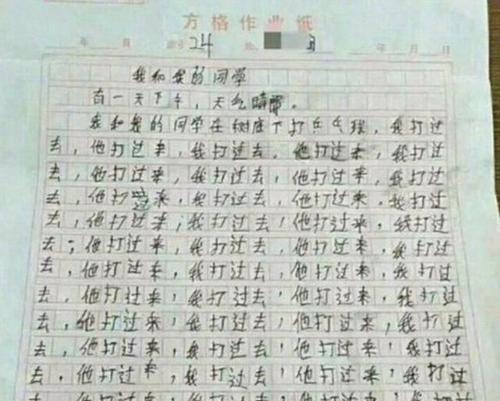 方格作业纸
年 月 24 3 年 月 日
我和我的同学
有一天下午,天气晴朗。
我和我的同学在树底下打乒乓球,我打过
去,他打过来,我打过去,他打过来,我打过
去,他打过来,我打过去,他打过来,我打过
去,他打过来,我打过去,他打过来,我打过
去,他打过来,我打过去,他打过来,我打过
去,他打过来,我打过去,他打过来,我打过
去,他打过来,我打过去,他打过来,我打过
去,他打过来,我打过去,他打过来,我打过
去,他打过来,我打过去,他打过来,我打过
去,他打过来,我打过去,他打过来,我打过
去,他打过来,我打过去,他打过来,我打过
去,他打过来,我打过去,他打过来,我打过